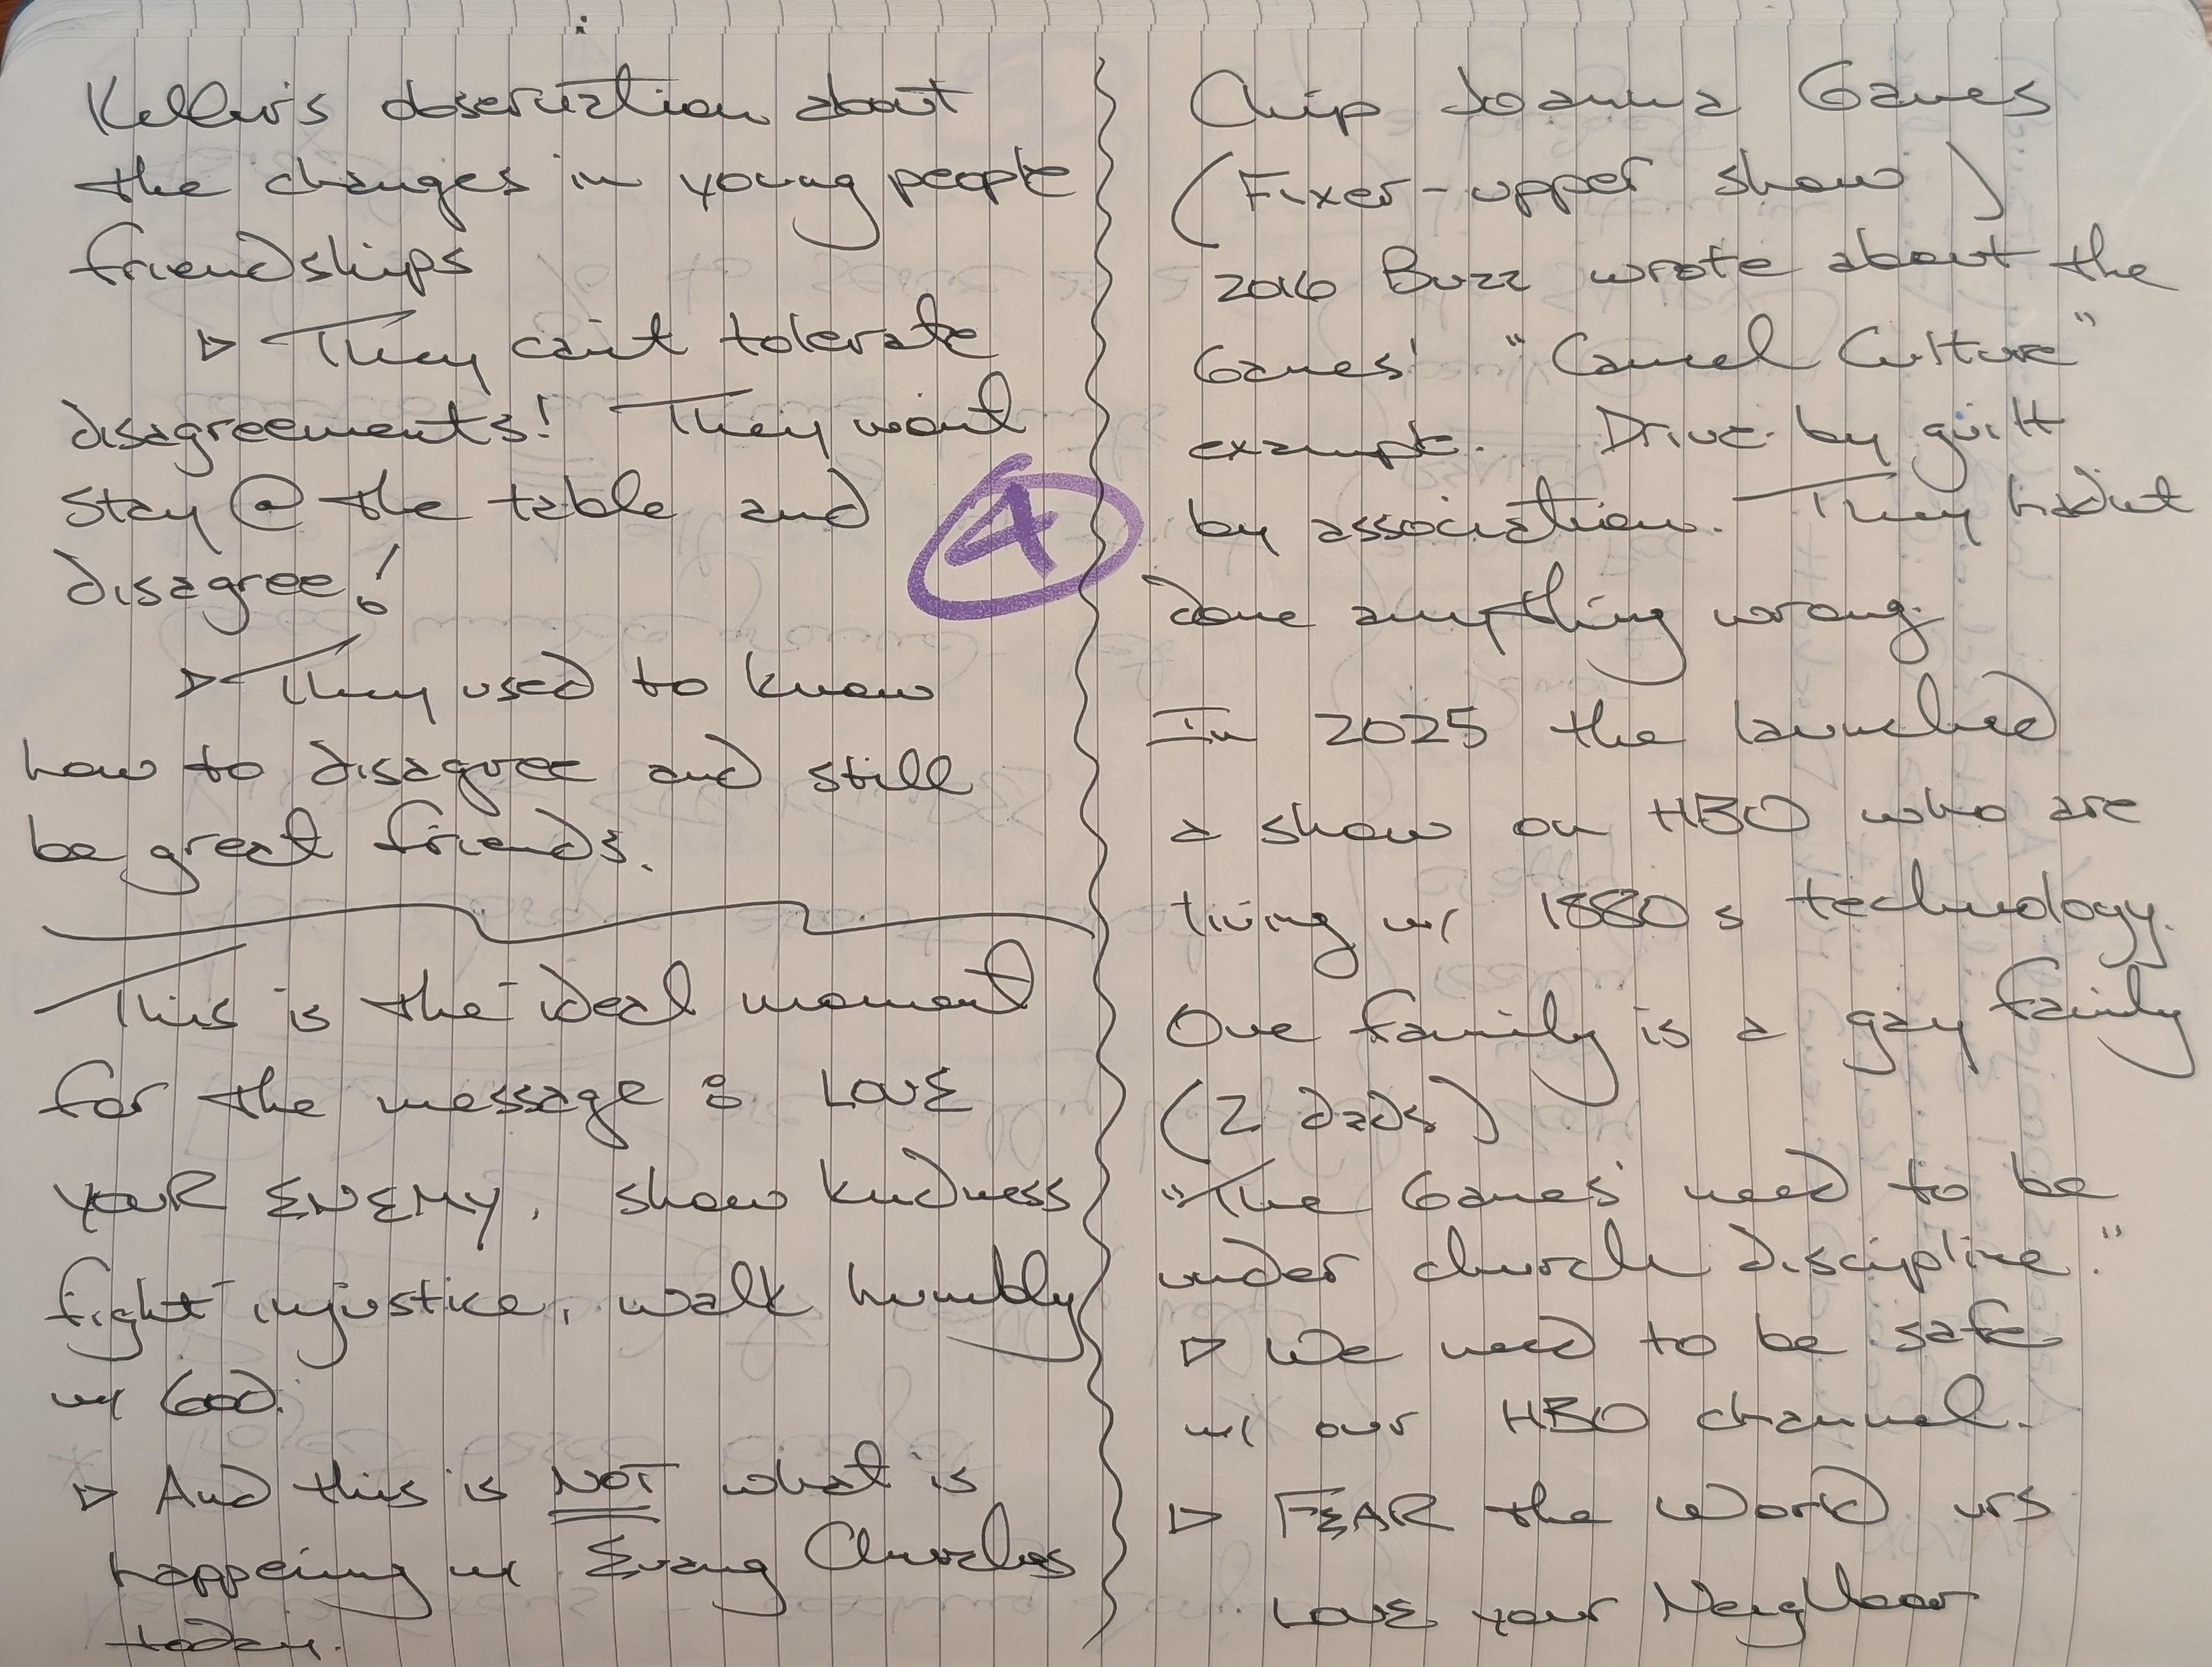 Keller's observation about
the changes in young people
friendships
▷ They can't tolerate
disagreements! They won't
stay @ the table and
disagree!
▷ They used to know
how to disagree and still
be great friends.
This is the ideal moment
for the message: LOVE
YOUR ENEMY, show kindness
fight injustice, walk humbly
w/ God.
▷ And this is NOT what is
happening in Evang Churches
today.
4
Chip Joanna Gaines
(Fixer-upper show)
2016 Buzz wrote about the
Gaines' "Cancel Culture"
example. Drive-by guilt
by association. They hadn't
done anything wrong.
In 2025 the launched
a show on HBO who are
living w/ 1880s technology.
One family is a gay family
(2 dads)
"The Gaines' need to be
under church discipline."
▷ We need to be safe
w/ our HBO channel.
▷ FEAR the World vrs
LOVE your Neighbor